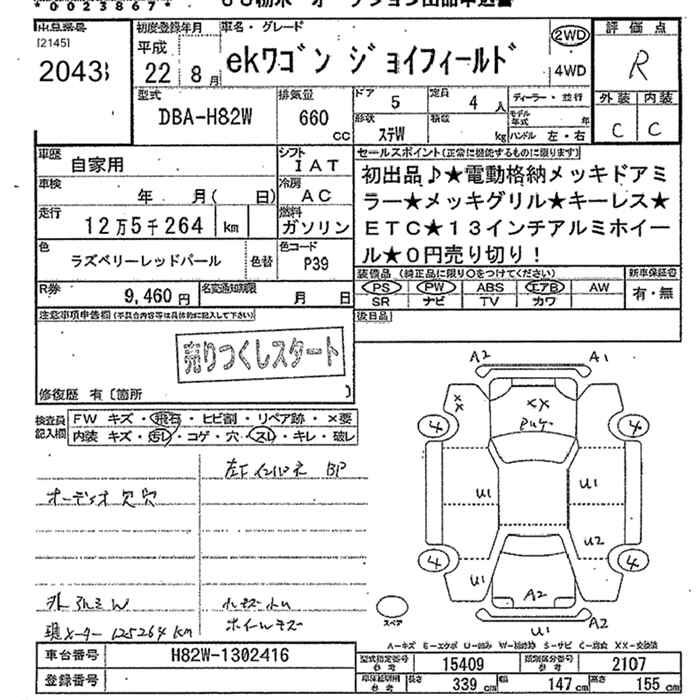 出品番号
[2145]
2043
初度登録年月
平成
22年 8月
車名・グレード
ekワゴン ジョイフィールド
2WD
4WD
評価点
R
外装 内装
C C
型式
DBA-H82W
排気量
660 cc
ドア 5
定員 4人
形状 ステW
積載 kg
ディーラー・並行
モデル年式 年
ハンドル 左・右
車歴
自家用
シフト
IAT
車検
年 月( 日)
冷房
AC
走行
12万5千264 km
燃料
ガソリン
色
ラズベリーレッドパール
色替
色コード
P39
R券
9,460円
名変通知期限
月 日
セールスポイント(正常に機能するものに限ります)
初出品♪★電動格納メッキドアミ
ラー★メッキグリル★キーレス★
ETC★13インチアルミホイー
ル★0円売り切り!
装備品(純正品に限り○をつけてください)
新車保証書
PS PW ABS エアB AW
SR ナビ TV カワ
有・無
後日品
注意事項申告欄(不具合内容等は具体的に記入して下さい)
売りつくしスタート
修復歴 有〔箇所 〕
検査員記入欄
FW キズ・飛石・ヒビ割・リペア跡・×要
内装 キズ・汚レ・コゲ・穴・スレ・キレ・破レ
オーディオ欠穴
BP
外アルミW
メーター 125264km
ホイールキズ
A2 A1
XX
XX
4 4
U1 U1
U2
4 4
U1
A2
U1 A2
スペア
車台番号
H82W-1302416
登録番号
型式指定番号 参考
15409
類別区分番号 参考
2107
長さ 339cm
幅 147cm
高さ 155cm